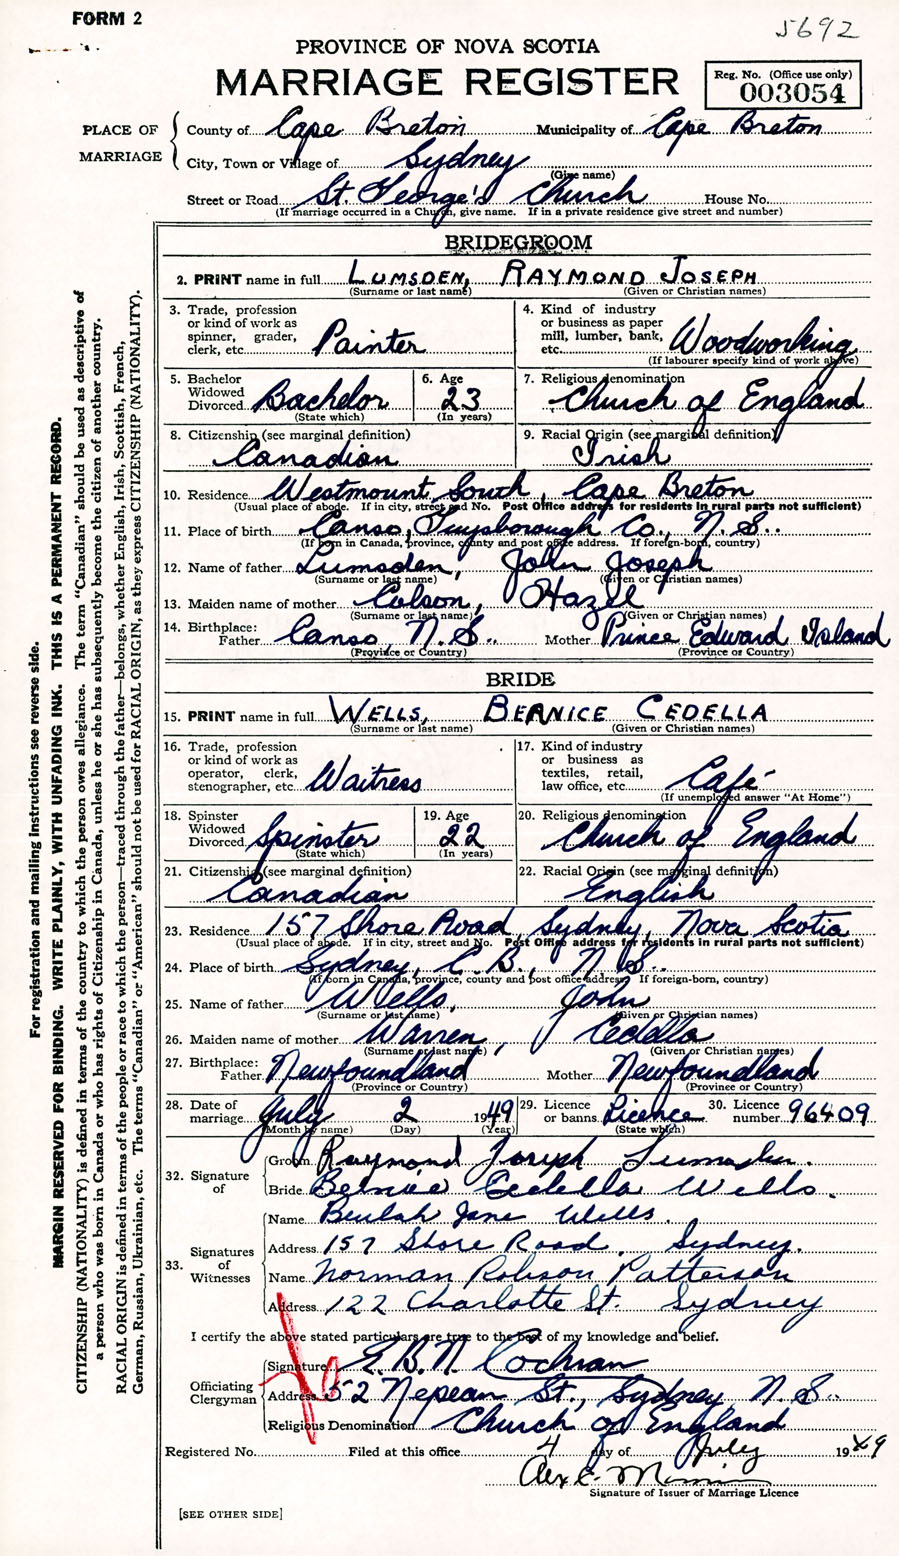 FORM 2
5692
PROVINCE OF NOVA SCOTIA
MARRIAGE REGISTER
Reg. No. (Office use only)
003054
PLACE OF MARRIAGE
County of Cape Breton Municipality of Cape Breton
City, Town or Village of Sydney
(Give name)
Street or Road St. George's Church House No.
(If marriage occurred in a Church, give name. If in a private residence give street and number)
BRIDEGROOM
2. PRINT name in full LUMSDEN, RAYMOND JOSEPH
(Surname or last name) (Given or Christian names)
3. Trade, profession or kind of work as spinner, grader, clerk, etc. Painter
4. Kind of industry or business as paper mill, lumber, bank, etc. Woodworking
(If labourer specify kind of work above)
5. Bachelor Widowed Divorced Bachelor
(State which)
6. Age 23
(In years)
7. Religious denomination
Church of England
8. Citizenship (see marginal definition)
Canadian
9. Racial Origin (see marginal definition)
Irish
10. Residence Westmount South, Cape Breton
(Usual place of abode. If in city, street and No. Post Office address for residents in rural parts not sufficient)
11. Place of birth Canso, Guysborough Co., N.S.
(If born in Canada, province, county and post office address. If foreign-born, country)
12. Name of father Lumsden, John Joseph
(Surname or last name) (Given or Christian names)
13. Maiden name of mother Colson, Hazel
(Surname or last name) (Given or Christian names)
14. Birthplace: Father Canso, N.S. Mother Prince Edward Island
(Province or Country) (Province or Country)
BRIDE
15. PRINT name in full WELLS, BERNICE CEDELLA
(Surname or last name) (Given or Christian names)
16. Trade, profession or kind of work as operator, clerk, stenographer, etc. Waitress
17. Kind of industry or business as textiles, retail, law office, etc. Café
(If unemployed answer "At Home")
18. Spinster Widowed Divorced Spinster
(State which)
19. Age 22
(In years)
20. Religious denomination
Church of England
21. Citizenship (see marginal definition)
Canadian
22. Racial Origin (see marginal definition)
English
23. Residence 157 Shore Road, Sydney, Nova Scotia
(Usual place of abode. If in city, street and No. Post Office address for residents in rural parts not sufficient)
24. Place of birth Sydney, C.B., N.S.
(If born in Canada, province, county and post office address. If foreign-born, country)
25. Name of father Wells, John
(Surname or last name) (Given or Christian names)
26. Maiden name of mother Warren, Cedella
(Surname or last name) (Given or Christian names)
27. Birthplace: Father Newfoundland Mother Newfoundland
(Province or Country) (Province or Country)
28. Date of marriage July 2 1949
(Month by name) (Day) (Year)
29. Licence or banns Licence
(State which)
30. Licence number 96409
32. Signature of
Groom Raymond Joseph Lumsden.
Bride Bernice Cedella Wells.
33. Signatures of Witnesses
Name Beulah Jane Wells.
Address 157 Shore Road, Sydney.
Name Norman Robson Patterson
Address 122 Charlotte St. Sydney
I certify the above stated particulars are true to the best of my knowledge and belief.
Officiating Clergyman
Signature E. B. N. Cochran
Address 52 Nepean St., Sydney N.S.
Religious Denomination Church of England
Registered No. Filed at this office 4 day of July 1949
Alex E.
Signature of Issuer of Marriage Licence
[SEE OTHER SIDE]
For registration and mailing instructions see reverse side.
MARGIN RESERVED FOR BINDING. WRITE PLAINLY, WITH UNFADING INK. THIS IS A PERMANENT RECORD.
CITIZENSHIP (NATIONALITY) is defined in terms of the country to which the person owes allegiance. The term "Canadian" should be used as descriptive of
a person who was born in Canada or who has rights of Citizenship in Canada, unless he or she has subsequently become the citizen of another country.
RACIAL ORIGIN is defined in terms of the people or race to which the person—traced through the father—belongs, whether English, Irish, Scottish, French,
German, Russian, Ukrainian, etc. The terms "Canadian" or "American" should not be used for RACIAL ORIGIN, as they express CITIZENSHIP (NATIONALITY).